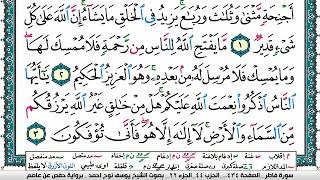 أَجْنِحَةٍ مَّثْنَىٰ وَثُلَـٰثَ وَرُبَـٰعَ يَزِيدُ فِى ٱلْخَلْقِ مَا يَشَآءُ إِنَّ ٱللَّهَ عَلَىٰ كُلِّ
شَىْءٍ قَدِيرٌ ١ مَّا يَفْتَحِ ٱللَّهُ لِلنَّاسِ مِن رَّحْمَةٍ فَلَا مُمْسِكَ لَهَا
وَمَا يُمْسِكْ فَلَا مُرْسِلَ لَهُۥ مِنۢ بَعْدِهِۦ وَهُوَ ٱلْعَزِيزُ ٱلْحَكِيمُ ٢ يَـٰٓأَيُّهَا
ٱلنَّاسُ ٱذْكُرُوا۟ نِعْمَتَ ٱللَّهِ عَلَيْكُمْ هَلْ مِنْ خَـٰلِقٍ غَيْرُ ٱللَّهِ يَرْزُقُكُم
مِّنَ ٱلسَّمَآءِ وَٱلْأَرْضِ لَآ إِلَـٰهَ إِلَّا هُوَ فَأَنَّىٰ تُؤْفَكُونَ ٣
سورة فاطر الصفحة ٤٣٤ الحزب ٤٤ الجزء ٢٢ بصوت الشيخ يوسف نوح احمد برواية حفص عن عاصم